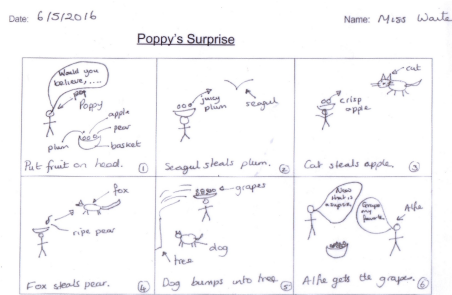 Date: 6/5/2016
Name: Miss Waite
Poppy's Surprise
Would you
believe, ....
Poppy
apple
pear
plum
basket
Put fruit on head. 1
juicy
plum
seagul
Seagul steals plum. 2
cat
crisp
apple
Cat steals apple. 3
fox
ripe pear
Fox steals pear. 4
grapes
dog
tree
Dog bumps into tree 5
Now
that is
a surprise
Grapes
my
favourite
Alfie
Alfie gets the grapes. 6